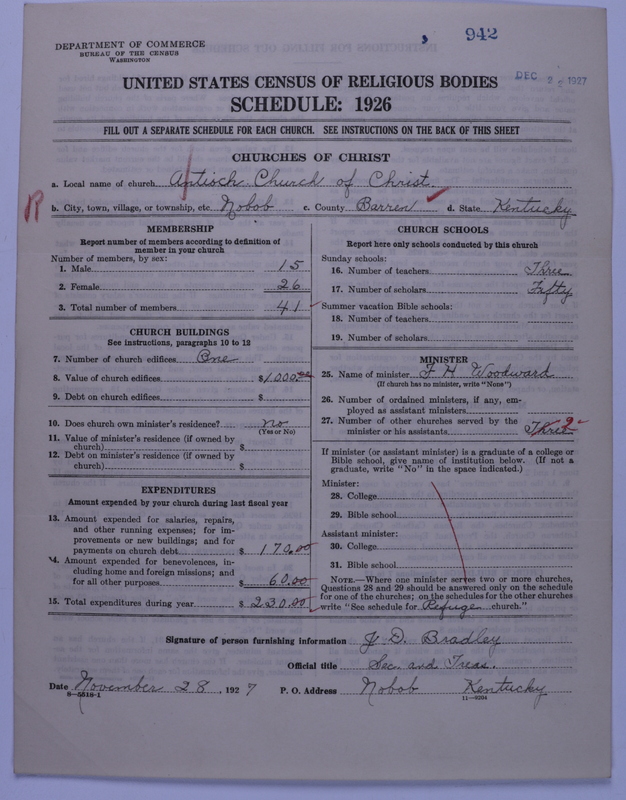 942
DEPARTMENT OF COMMERCE
BUREAU OF THE CENSUS
WASHINGTON
DEC 2 1927
UNITED STATES CENSUS OF RELIGIOUS BODIES
SCHEDULE: 1926
FILL OUT A SEPARATE SCHEDULE FOR EACH CHURCH. SEE INSTRUCTIONS ON THE BACK OF THIS SHEET
CHURCHES OF CHRIST
a. Local name of church Antioch Church of Christ
R b. City, town, village, or township, etc. Nobob c. County Barren d. State Kentucky
MEMBERSHIP
Report number of members according to definition of
member in your church
Number of members, by sex:
1. Male 15
2. Female 26
3. Total number of members 41
CHURCH BUILDINGS
See instructions, paragraphs 10 to 12
7. Number of church edifices One
8. Value of church edifices $1000.00
9. Debt on church edifices $
10. Does church own minister's residence? no
(Yes or No)
11. Value of minister's residence (if owned by
church) $
12. Debt on minister's residence (if owned by
church) $
EXPENDITURES
Amount expended by your church during last fiscal year
13. Amount expended for salaries, repairs,
and other running expenses; for im-
provements or new buildings; and for
payments on church debt $ 170.00
14. Amount expended for benevolences, in-
cluding home and foreign missions; and
for all other purposes $ 60.00
15. Total expenditures during year $ 230.00
CHURCH SCHOOLS
Report here only schools conducted by this church
Sunday schools:
16. Number of teachers Three
17. Number of scholars Fifty
Summer vacation Bible schools:
18. Number of teachers
19. Number of scholars
MINISTER
25. Name of minister F H Woodward
(If church has no minister, write "None")
26. Number of ordained ministers, if any, em-
ployed as assistant ministers
27. Number of other churches served by the
minister or his assistants Three 2
If minister (or assistant minister) is a graduate of a college or
Bible school, give name of institution below. (If not a
graduate, write "No" in the space indicated.)
Minister:
28. College
29. Bible school
Assistant minister:
30. College
31. Bible school
NOTE.—Where one minister serves two or more churches,
Questions 28 and 29 should be answered only on the schedule
for one of the churches; on the schedules for the other churches
write "See schedule for Refuge church."
Signature of person furnishing information J. D. Bradley
Official title Sec. and Treas.
Date November 28, 1927 P. O. Address Nobob Kentucky
8—5518-1
11—9294